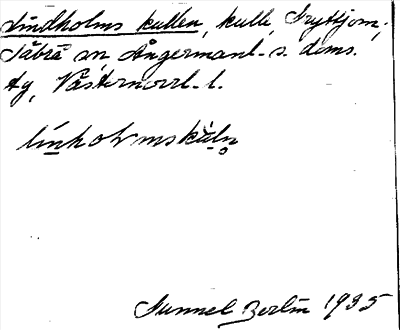 Lindholms kullen, kulle, Fryttjom,
Säbrå sn Ångermanl. s. doms.
tg, Västernorrl. l.
línholmskùln
Gunnel Berlin 1935